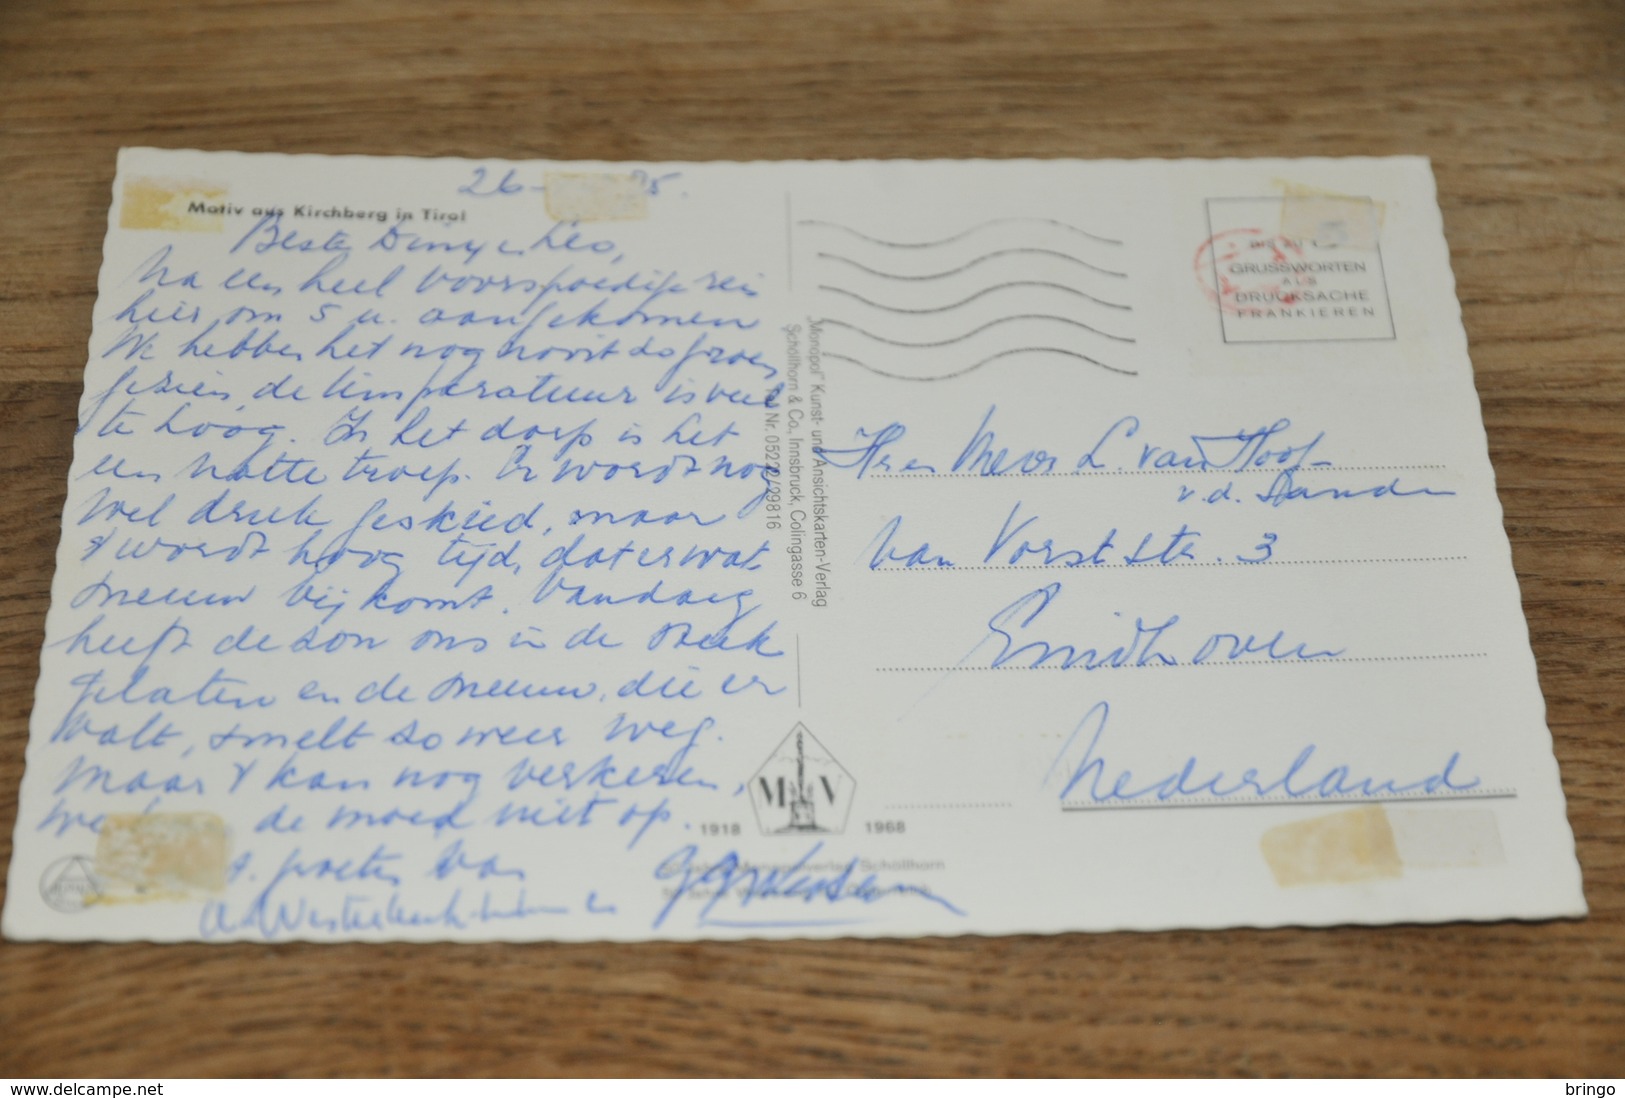 Motiv aus Kirchberg in Tirol
26- 75.
Beste Diny e Leo,
Na een heel voorspoedige reis
hier om 5 u. aangekomen
We hebben het nog nooit zo groen
gezien, de temperatuur is veel
te hoog. In het dorp is het
een natte troep. Er wordt nog
wel druk geskied, maar
't wordt hoog tijd, dat er wat
sneeuw bijkomt. Vandaag
heeft de zon ons in de steek
gelaten en de sneeuw, die er
valt, smelt zo weer weg.
Maar 't kan nog verkeren,
we de moed niet op.
groeten van
"Monopol" Kunst- und Ansichtskarten-Verlag
Schöllhorn & Co., Innsbruck, Colingasse 6
Nr. 05222/29816
M V
1918 1968
Schöllhorn
GRUSSWORTEN
ALS
DRUCKSACHE
FRANKIEREN
Hr en Mevr L. van Hoof-
v.d. Sande
Van Vorststr. 3
Eindhoven
Nederland
delcampe.net
bringo